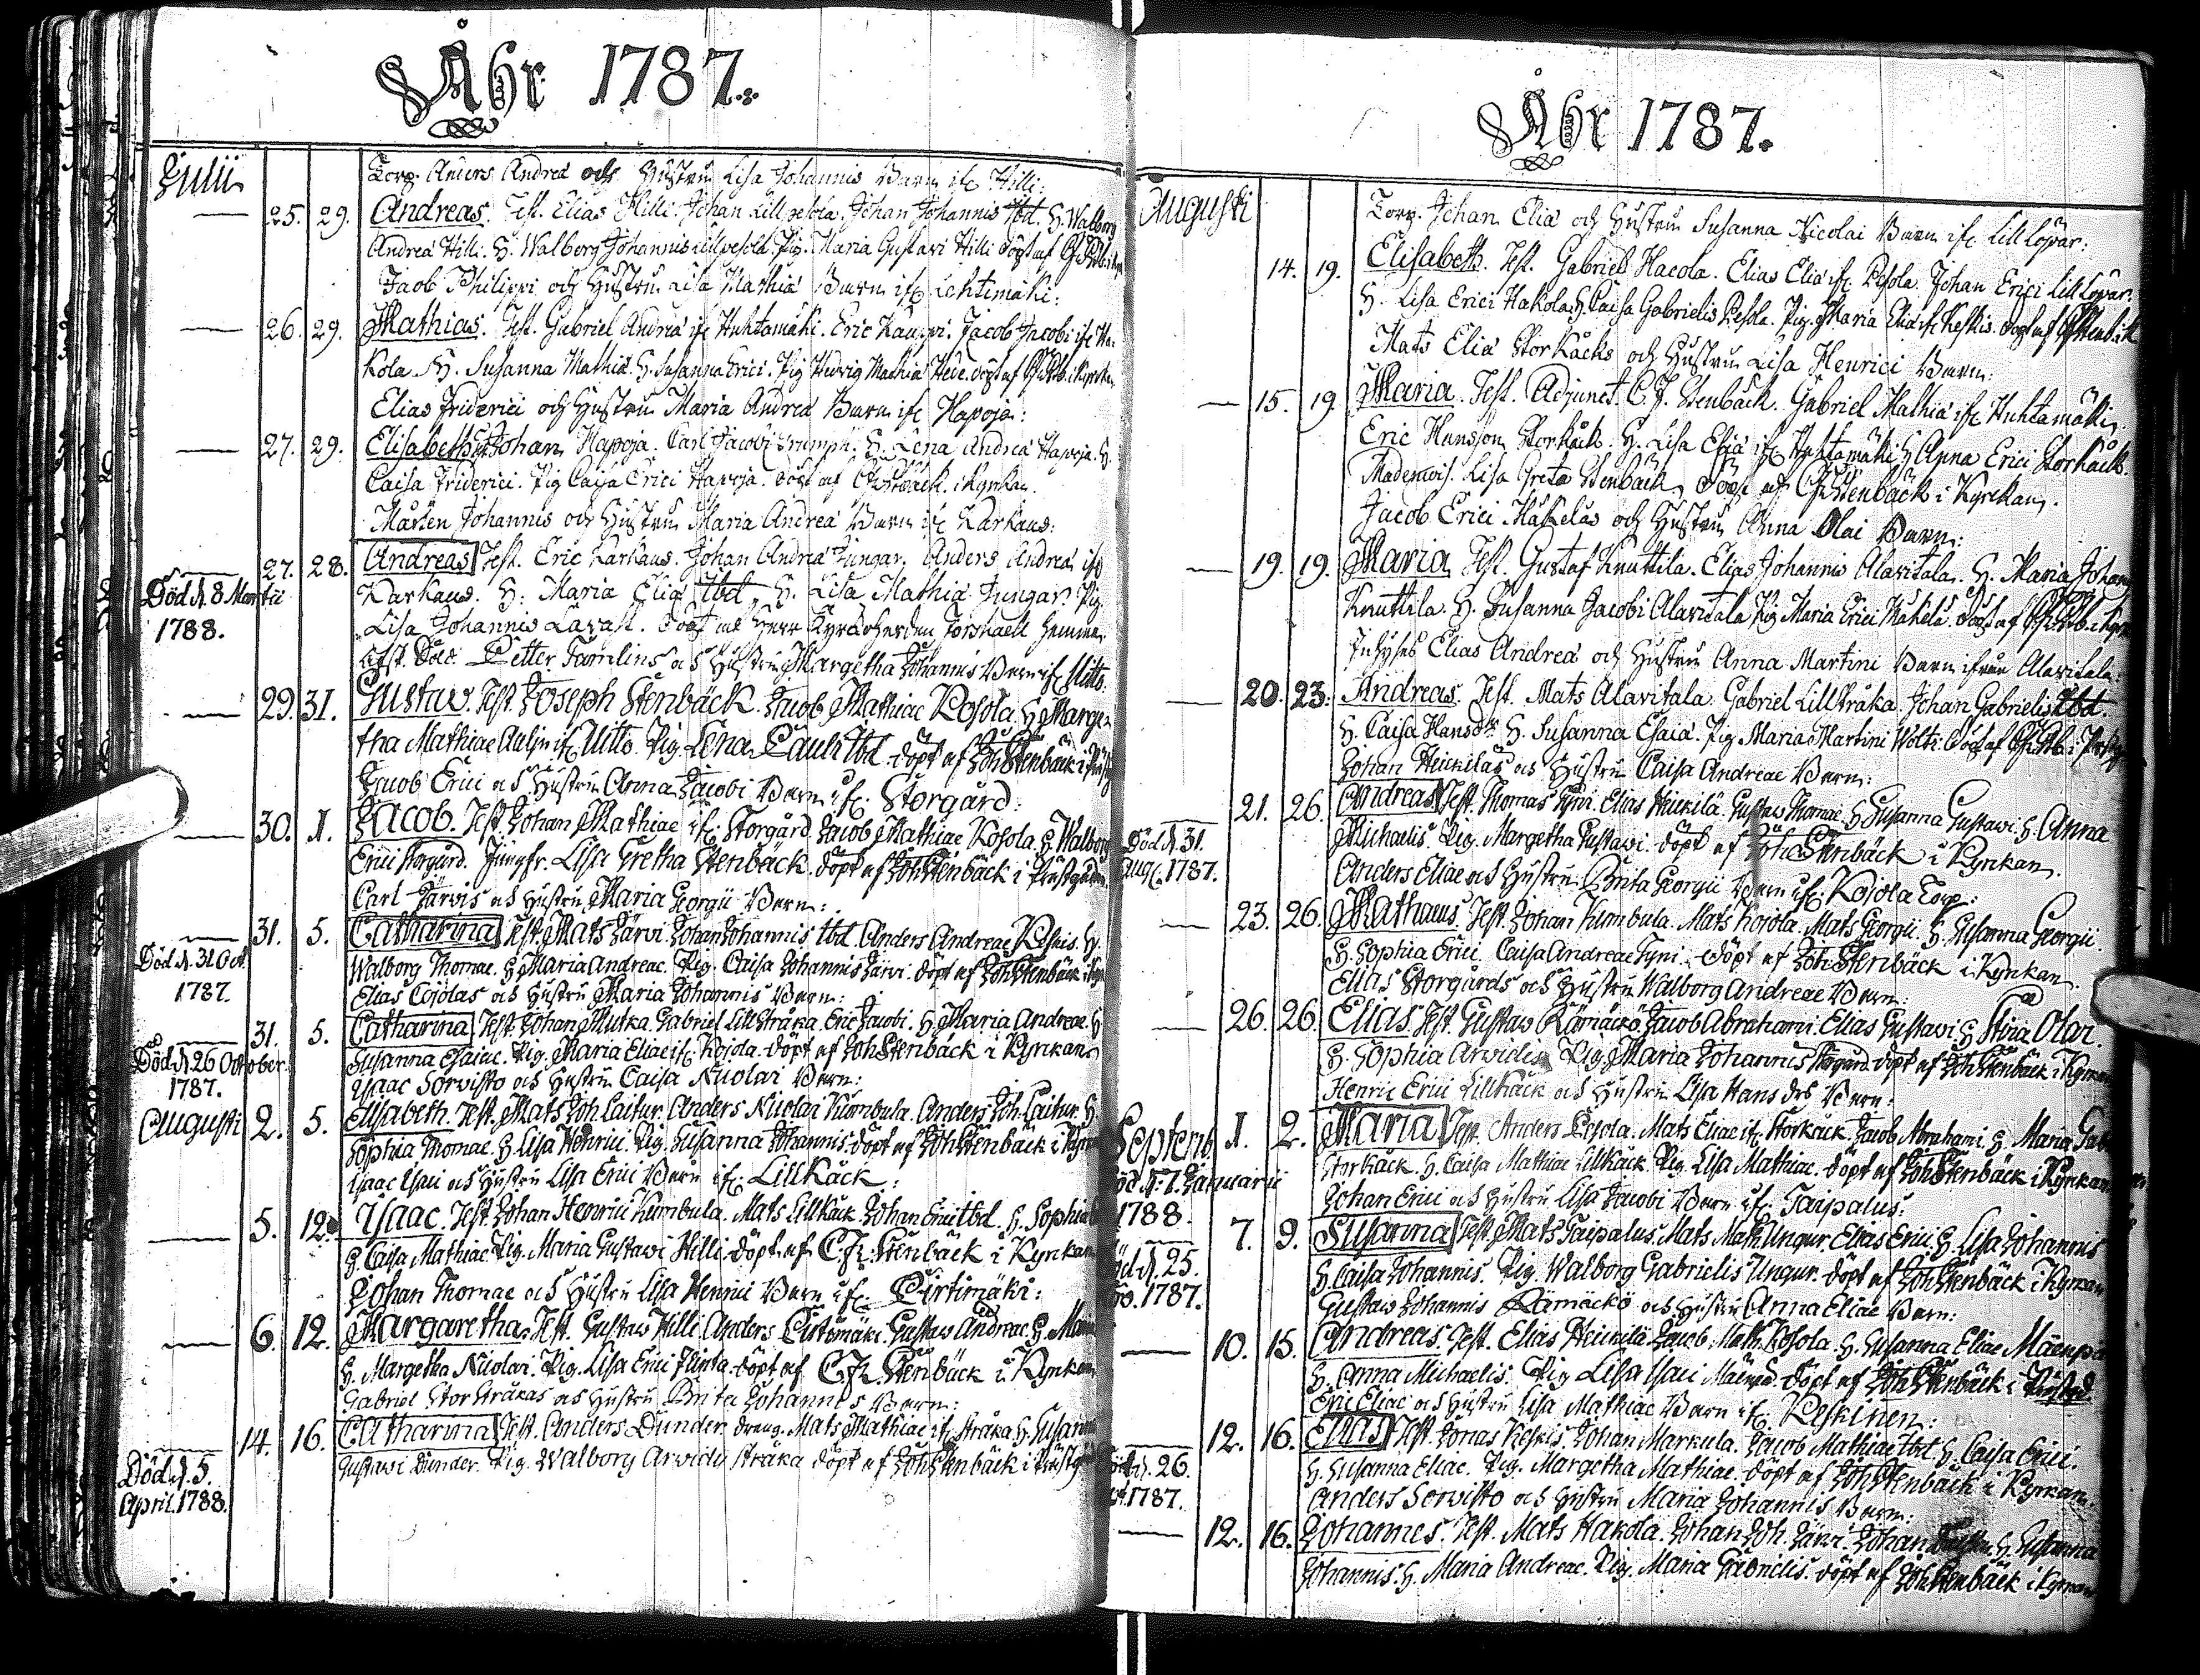 Åhr 1787.
Julii
Torp. Anders Andreæ och Hustru Lisa Johannis Barn ifr. Hilli:
25. 29. Andreas. Test. Elias Hilli. Johan Lillpesola. Johan Johannis Ibd. H. Walborg
Andreæ Hilli. H. Walborg Johannis Lillpesola. Pig. Maria Gustavi Hilli döpt af
Jacob Philippi och Hustru Lisa Mathiæ Barn ifr.
26. 29. Mathias. Test. Gabriel Andreæ ifr. Huhtamäki. Eric Kauppi. Jacob Jacobi ifr. Ha-
kola. H. Susanna Mathiæ. H. Susanna Erici. Pig. Hedvig Mathiæ Hede. döpt af
Elias Friderici och Hustru Maria Andreæ Barn ifr. Hapoja:
27. 29. Elisabeth. Test. Johan Hapoja. Carl Jacobi. H. Lena Andreæ Hapoja. H.
Caisa Friderici. Pig. Caisa Erici Hapoja. döpt af Stenbäck. i Kyrkan.
Mårten Johannis och Hustru Maria Andreæ Barn ifr. Karhaus:
27. 28. Andreas Test. Eric Karhaus. Johan Andreæ Jungar. Anders Andreæ ifr
Död d. 8 Martii
1788.
Karhaus. H. Maria Eliæ Ibd. H. Lisa Mathiæ Jungar. Pig.
Lisa Johannis Lavast. döpt af Herr Kyrkoherden Forshaell hemma.
Afsk. Petter Tamlins och Hustru Margetha Johannis Barn ifr. Uitto.
29. 31. Gustaw. Test. Joseph Stenbäck. Jacob Mathiae Kosola. H. Marge-
tha Mathiae ifr. Uitto. Pig. Lena Ibd. döpt af Joh. Stenbäck i
Jacob Erici och Hustru Anna Jacobi Barn ifr. Storgård:
30. 1. Jacob. Test. Johan Mathiae ifr. Storgård. Jacob Mathiae Kosola. H. Walborg
Erici Storgård. Jungfr. Lisa Gretha Stenbäck. döpt af Joh. Stenbäck i Prästgården.
Carl Järvis och Hustru Maria Georgii Barn:
31. 5. Catharina Test. Mats Järvi. Johan Johannis Ibd. Anders Andreae Keskis. H.
Död d. 31 Oct.
1787.
Walborg Thomae. H. Maria Andreae. Pig. Caisa Johannis Järvi. döpt af Joh. Stenbäck i
Elias Cojolas och Hustru Maria Johannis Barn:
31. 5. Catharina Test. Johan Mutka. Gabriel Lillstråka. Eric Jacobi. H. Maria Andreae. H.
Död d. 26 October
1787.
Susanna Esaiae. Pig. Maria Eliae ifr. Kojola. döpt af Joh. Stenbäck i Kyrkan.
Isaac Sorvisto och Hustru Caisa Nicolai Barn:
Augusti 2. 5. Elisabeth. Test. Mats Joh. Laitur. Anders Nicolai Kumbula. Anders Joh. Laitur. H.
Sophia Thomae. H. Lisa Henrici. Pig. Susanna Johannis. döpt af Joh. Stenbäck i
Isaac Isaci och Hustru Lisa Erici Barn ifr. Lillkäck:
5. 12. Isaac. Test. Johan Henrici Kumbula. Mats Lillkäck. Johan Erici Ibd. H. Sophia
H. Caisa Mathiae. Pig. Maria Gustawi Hilli. döpt af C. Fr. Stenbäck i Kyrkan
Johan Thomae och Hustru Lisa Henrici Barn ifr. Pirtimäki:
6. 12. Margaretha. Test. Gustaw Hilli. Anders Pirtimäki. Gustaw Andreae. H. Maria
H. Margetha Nicolai. Pig. Lisa Erici Flinta. döpt af C. Fr. Stenbäck i Kyrkan
Gabriel Storstråkas och Hustru Brita Johannis Barn:
14. 16. Catharina Test. Anders Dunder. Dreng. Mats Mathiae ifr. Stråka. H. Susanna
Gustawi Dunder. Pig. Walborg Arwidis Stråka döpt af Joh. Stenbäck i
Död d. 5.
April. 1788.
Åhr 1787.
Augusti
Torp. Johan Eliæ och Hustru Susanna Nicolai Barn ifr. Lill Lopar:
14. 19. Elisabeth. Test. Gabriel Hacola. Elias Eliæ ifr. Pesola. Johan Erici Lill Lopar.
H. Lisa Erici Hakola. H. Caisa Gabrielis Pesola. Pig. Maria Eliæ ifr. Keskis. döpt af
Mats Eliæ Storkäcks och Hustru Lisa Henrici Barn:
15. 19. Maria. Test. Adjunct. C. F. Stenbäck. Gabriel Mathiæ ifr. Huhtamäki.
Eric Hansson Storkäck. H. Lisa Eliæ ifr. Huhtamäki. H. Anna Erici Storkäck.
Mademois. Lisa Greta Stenbäck. döpt af Stenbäck i Kyrckan.
Jacob Erici Mäkeläs och Hustru Anna Olai Barn:
19. 19. Maria Test. Gustaf Knuttila. Elias Johannis Alavitala. H. Maria Johan
Knuttila. H. Susanna Jacobi Alavitala. Pig. Maria Erici Mäkelä. döpt af
Inhyses Elias Andreæ och Hustru Anna Martini Barn ifrån Alavitala:
20. 23. Andreas. Test. Mats Alavitala. Gabriel Lillstråka. Johan Gabrielis Ibd.
H. Caisa Hansdr. H. Susanna Esaiæ. Pig. Maria Martini Wolti. döpt af
Johan Heickiläs och Hustru Caisa Andreae Barn:
21. 26. Andreas Test. Thomas Tyni. Elias Heickilä. Gustaw Thomae. H. Susanna Gustawi. H. Anna
Död d. 31.
Aug. 1787.
Michaelis. Pig. Margetha Gustawi. döpt af Joh. Stenbäck i Kyrkan.
Anders Eliae och Hustru Brita Georgii Barn ifr. Kojola Torp:
23. 26. Mathaeus. Test. Johan Kumbula. Mats Kojola. Mats Georgii. H. Susanna Georgii.
H. Sophia Erici. Caisa Andreae Tyni. döpt af Joh. Stenbäck i Kyrkan.
Elias Storgårds och Hustru Walborg Andreae Barn:
26. 26. Elias. Test. Gustaw Rämäckö. Jacob Abrahami. Elias Gustawi. H. Stina Olai.
H. Sophia Arwidis. Pig. Maria Johannis Storgård. döpt af Joh. Stenbäck i Kyrkan
Henric Erici Lillkäck och Hustru Lisa Hans dr. Barn:
Septemb. 1. 2. Maria Test. Anders Pesola. Mats Eliae ifr. Storkäck. Jacob Abrahami. H. Maria
Död d. 7. Januarii
1788.
Storkäck. H. Caisa Mathiae Lillkäck. Pig. Lisa Mathiae. döpt af Joh. Stenbäck i Kyrkan
Johan Erici och Hustru Lisa Jacobi Barn ifr. Taipalus:
7. 9. Susanna Test. Mats Taipalus. Mats Math. Ungur. Elias Erici. H. Lisa Johannis
d. 25.
1787.
H. Caisa Johannis. Pig. Walborg Gabrielis Ungur. döpt af Joh. Stenbäck i Kyrkan
Gustaw Johannis Rämäckö och Hustru Anna Eliae Barn:
10. 15. Andreas. Test. Elias Heickilä. Jacob Math. Kosola. H. Susanna Eliae Mäenpä
H. Anna Michaelis. Pig. Lisa Isaci Mäenpä. döpt af Joh. Stenbäck i
Eric Eliae och Hustru Lisa Mathiae Barn ifr. Keskinen:
12. 16. Elias Test. Jonas Keskis. Johan Markula. Jacob Mathiae Ibd. H. Caisa Erici.
d. 26.
1787.
H. Susanna Eliae. Pig. Margetha Mathiae. döpt af Joh. Stenbäck i Kyrkan.
Anders Sorvisto och Hustru Maria Johannis Barn:
12. 16. Johannes. Test. Mats Hakola. Johan Joh. Järvi. Johan H. Susanna
Johannis. H. Maria Andreae. Pig. Maria Gabrielis. döpt af Joh. Stenbäck i Kyrkan